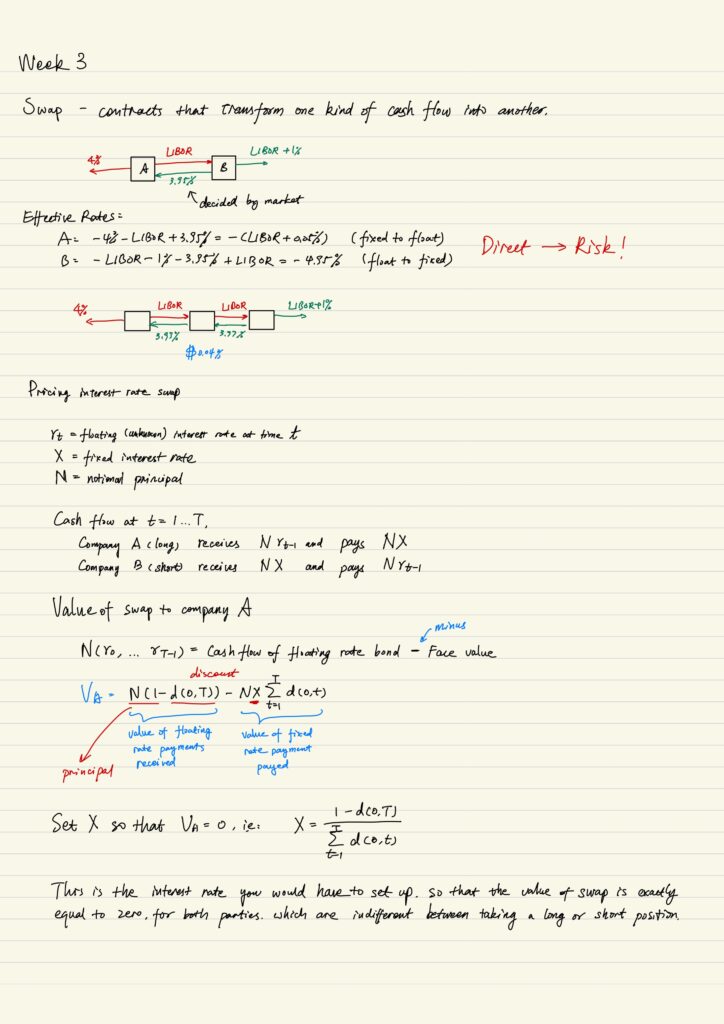 Week 3
Swap - contracts that transform one kind of cash flow into another.
4% LIBOR LIBOR + 1%
A B
3.95%
decided by market
Effective Rates:
A = -4% - LIBOR + 3.95% = -(LIBOR + 0.05%) (fixed to float)
B = - LIBOR - 1% - 3.95% + LIBOR = - 4.95% (float to fixed)
Direct → Risk!
4% LIBOR LIBOR LIBOR+1%
3.93% 3.97%
$0.04%
Pricing interest rate swap
rt = floating (unknown) interest rate at time t
X = fixed interest rate
N = notional principal
Cash flow at t = 1 ... T,
Company A (long) receives N rt-1 and pays NX
Company B (short) receives NX and pays N rt-1
Value of swap to company A
minus
N(r0, ... rT-1) = Cash flow of floating rate bond - Face value
discount
VA = N(1 - d(0,T)) - NX ∑ᵀₜ₌₁ d(0,t)
value of floating rate payments received
value of fixed rate payment payed
principal
Set X so that VA = 0, ie: X = (1 - d(0,T)) / (∑ᵀₜ₌₁ d(0,t))
This is the interest rate you would have to set up. so that the value of swap is exactly
equal to zero, for both parties. which are indifferent between taking a long or short position.